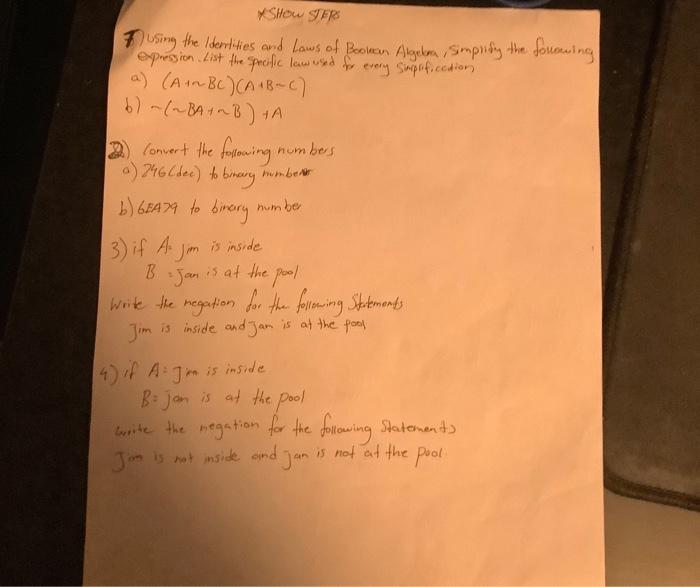 *SHow STEPS
1) Using the Identities and Laws of Boolean Algebra, Simplify the following
expression. List the specific law used for every Simplification
a) (A+~BC)(A+B~C)
b) ~(~BA+~B)+A
2) Convert the following numbers
a) 246(dec) to binary number
b) 6EA79 to binary number
3) if A= Jim is inside
B = Jan is at the pool
Write the negation for the following Statements
Jim is inside and Jan is at the pool
4) if A= Jim is inside
B= Jan is at the pool
write the negation for the following Statements
Jim is not inside and Jan is not at the pool.